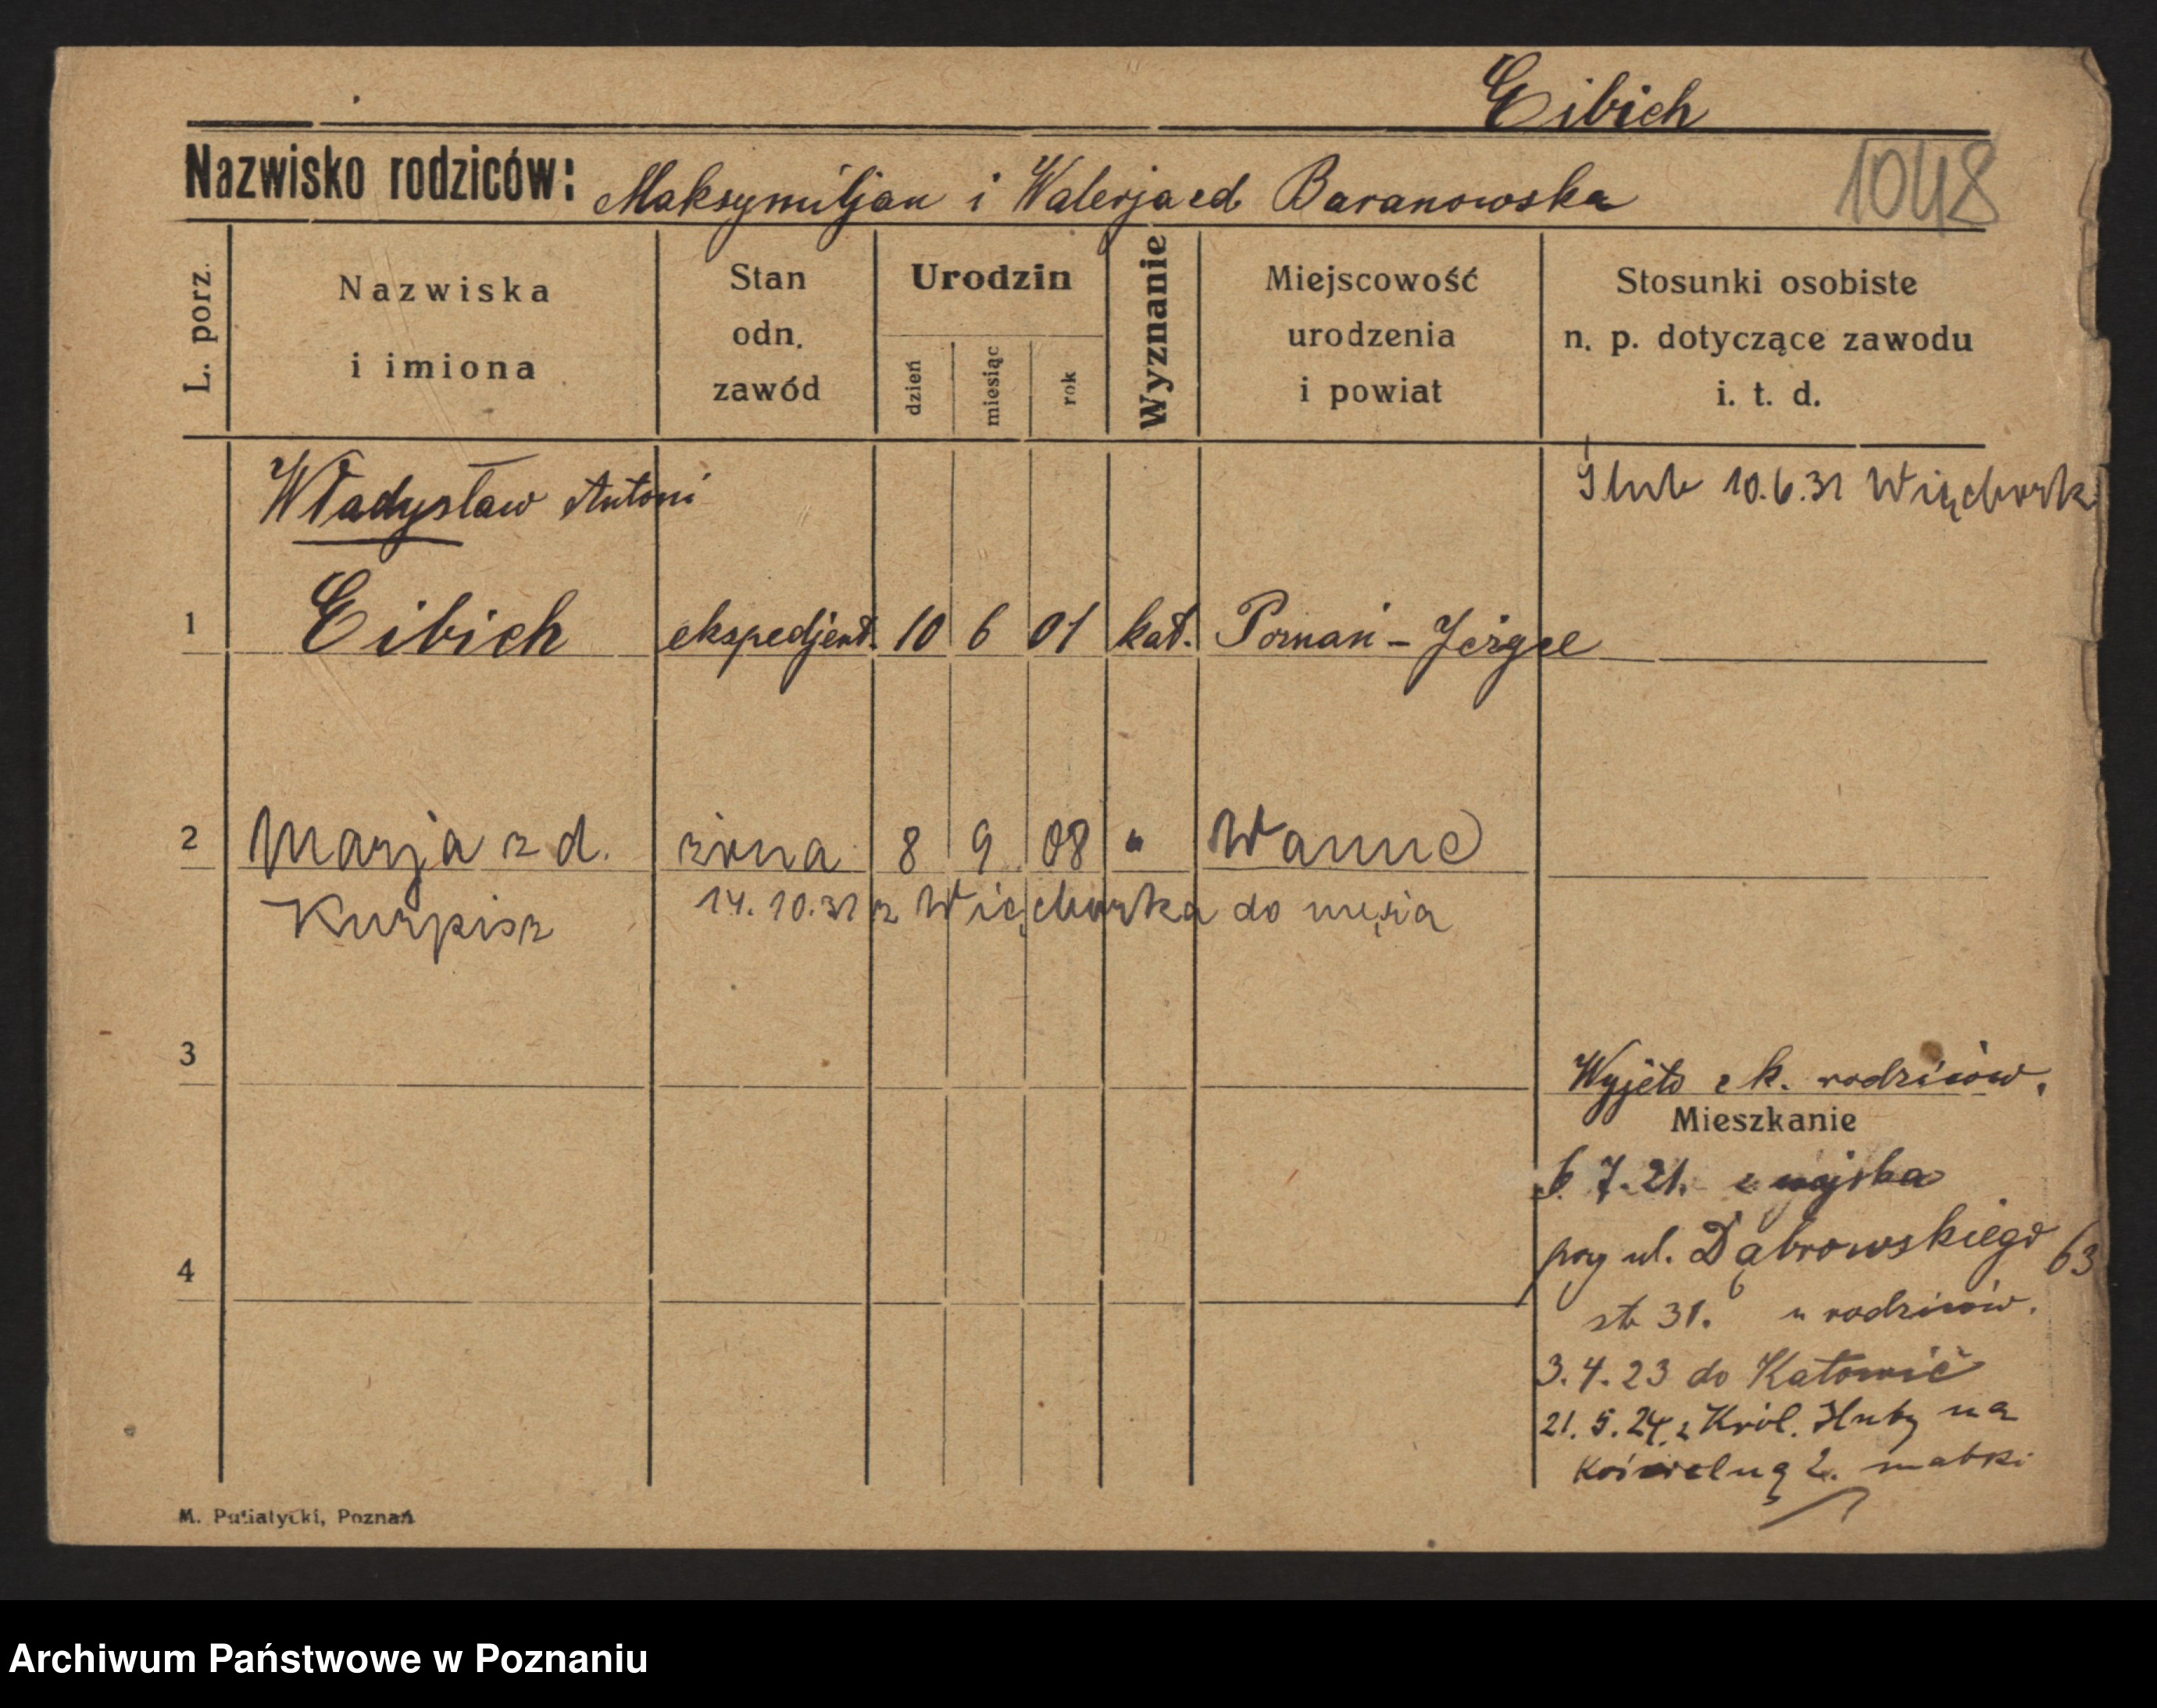 Eibich
Nazwisko rodziców: Maksymiljan i Walerja zd Baranowska
1048
L. porz.
Nazwiska
i imiona
Stan
odn.
zawód
Urodzin
dzień
miesiąc
rok
Wyznanie
Miejscowość
urodzenia
i powiat
Stosunki osobiste
n. p. dotyczące zawodu
i. t. d.
Władysław Antoni
Ślub 10.6.31 Więcbork
1 Eibich ekspedjent. 10 6 01 kat. Poznań - Jeżyce
2 Marja z d. żona 8 9 08 " Wanne
Kurpisz
14.10.31 z Więcborka do męża
3
Wyjęto z k. rodziców.
Mieszkanie
6. 7. 21. z wojska
przy ul. Dąbrowskiego 63
4
st 31. u rodziców.
3. 4. 23 do Katowic
21. 5. 24. z Król. Huty na
Kościelną 2. matki
M. Putiatycki, Poznań
Archiwum Państwowe w Poznaniu